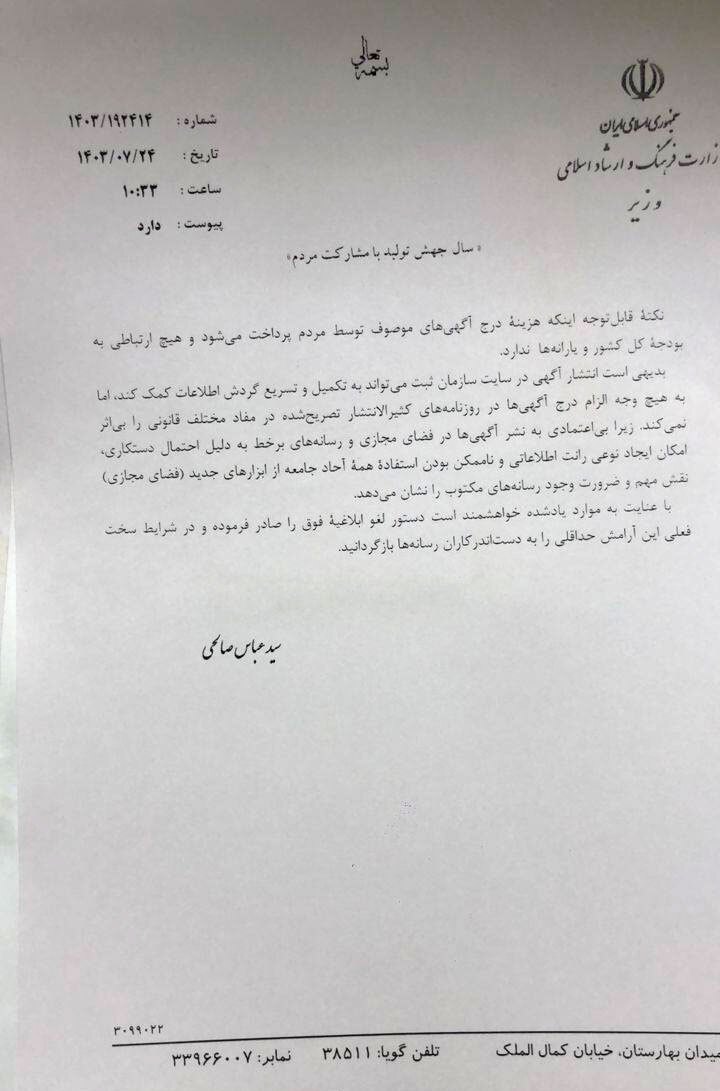 بسمه تعالی
جمهوری اسلامی ایران
وزارت فرهنگ و ارشاد اسلامی
وزیر
شماره : ۱۴۰۳/۱۹۲۴۱۴
تاریخ : ۱۴۰۳/۰۷/۲۴
ساعت : ۱۰:۳۳
پیوست : دارد
«سال جهش تولید با مشارکت مردم»
نکتهٔ قابل‌توجه اینکه هزینهٔ درج آگهی‌های موصوف توسط مردم پرداخت می‌شود و هیچ ارتباطی به
بودجهٔ کل کشور و یارانه‌ها ندارد.
بدیهی است انتشار آگهی در سایت سازمان ثبت می‌تواند به تکمیل و تسریع گردش اطلاعات کمک کند، اما
به هیچ وجه الزام درج آگهی‌ها در روزنامه‌های کثیرالانتشار تصریح‌شده در مفاد مختلف قانونی را بی‌اثر
نمی‌کند. زیرا بی‌اعتمادی به نشر آگهی‌ها در فضای مجازی و رسانه‌های برخط به دلیل احتمال دستکاری،
امکان ایجاد نوعی رانت اطلاعاتی و ناممکن بودن استفادهٔ همهٔ آحاد جامعه از ابزارهای جدید (فضای مجازی)
نقش مهم و ضرورت وجود رسانه‌های مکتوب را نشان می‌دهد.
با عنایت به موارد یادشده خواهشمند است دستور لغو ابلاغیهٔ فوق را صادر فرموده و در شرایط سخت
فعلی این آرامش حداقلی را به دست‌اندرکاران رسانه‌ها بازگردانید.
سید عباس صالحی
۳۰۹۹۰۲۲
میدان بهارستان، خیابان کمال الملک تلفن گویا: ۳۸۵۱۱ نمابر: ۳۳۹۶۶۰۰۷